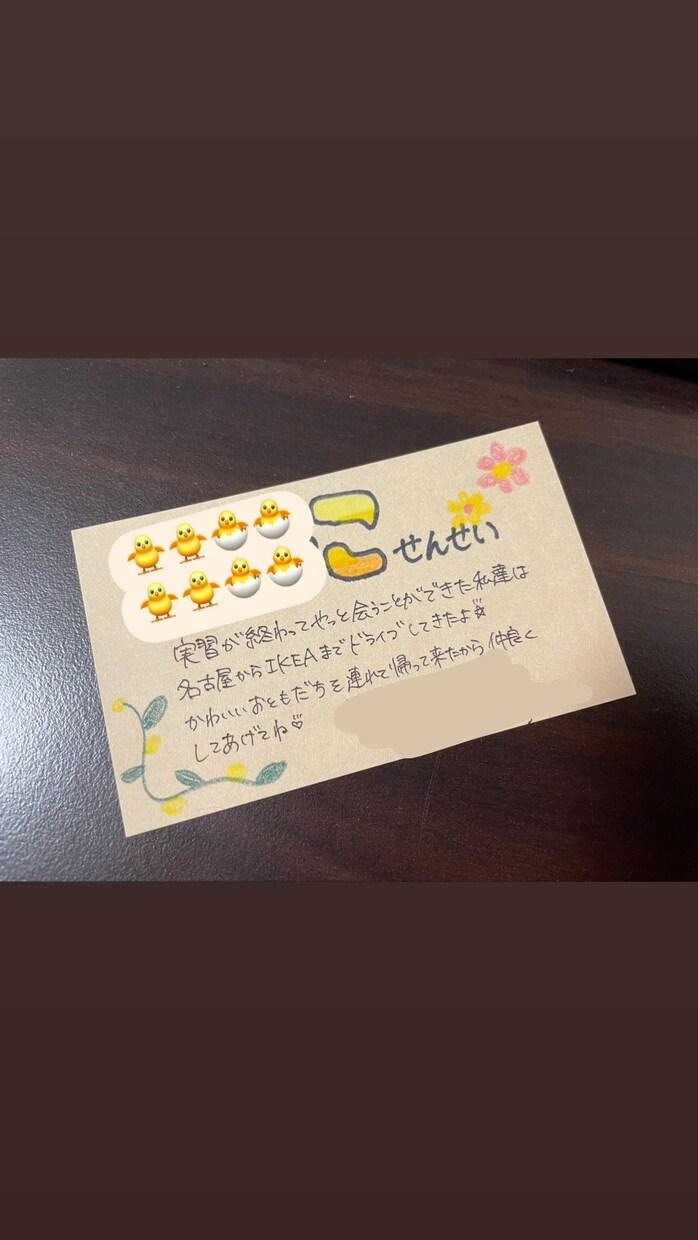 せんせい
実習が終わってやっと会うことができた私達は
名古屋からIKEAまでドライブしてきたよ
かわいいおともだちを連れて帰って来たから仲良く
してあげてね♡